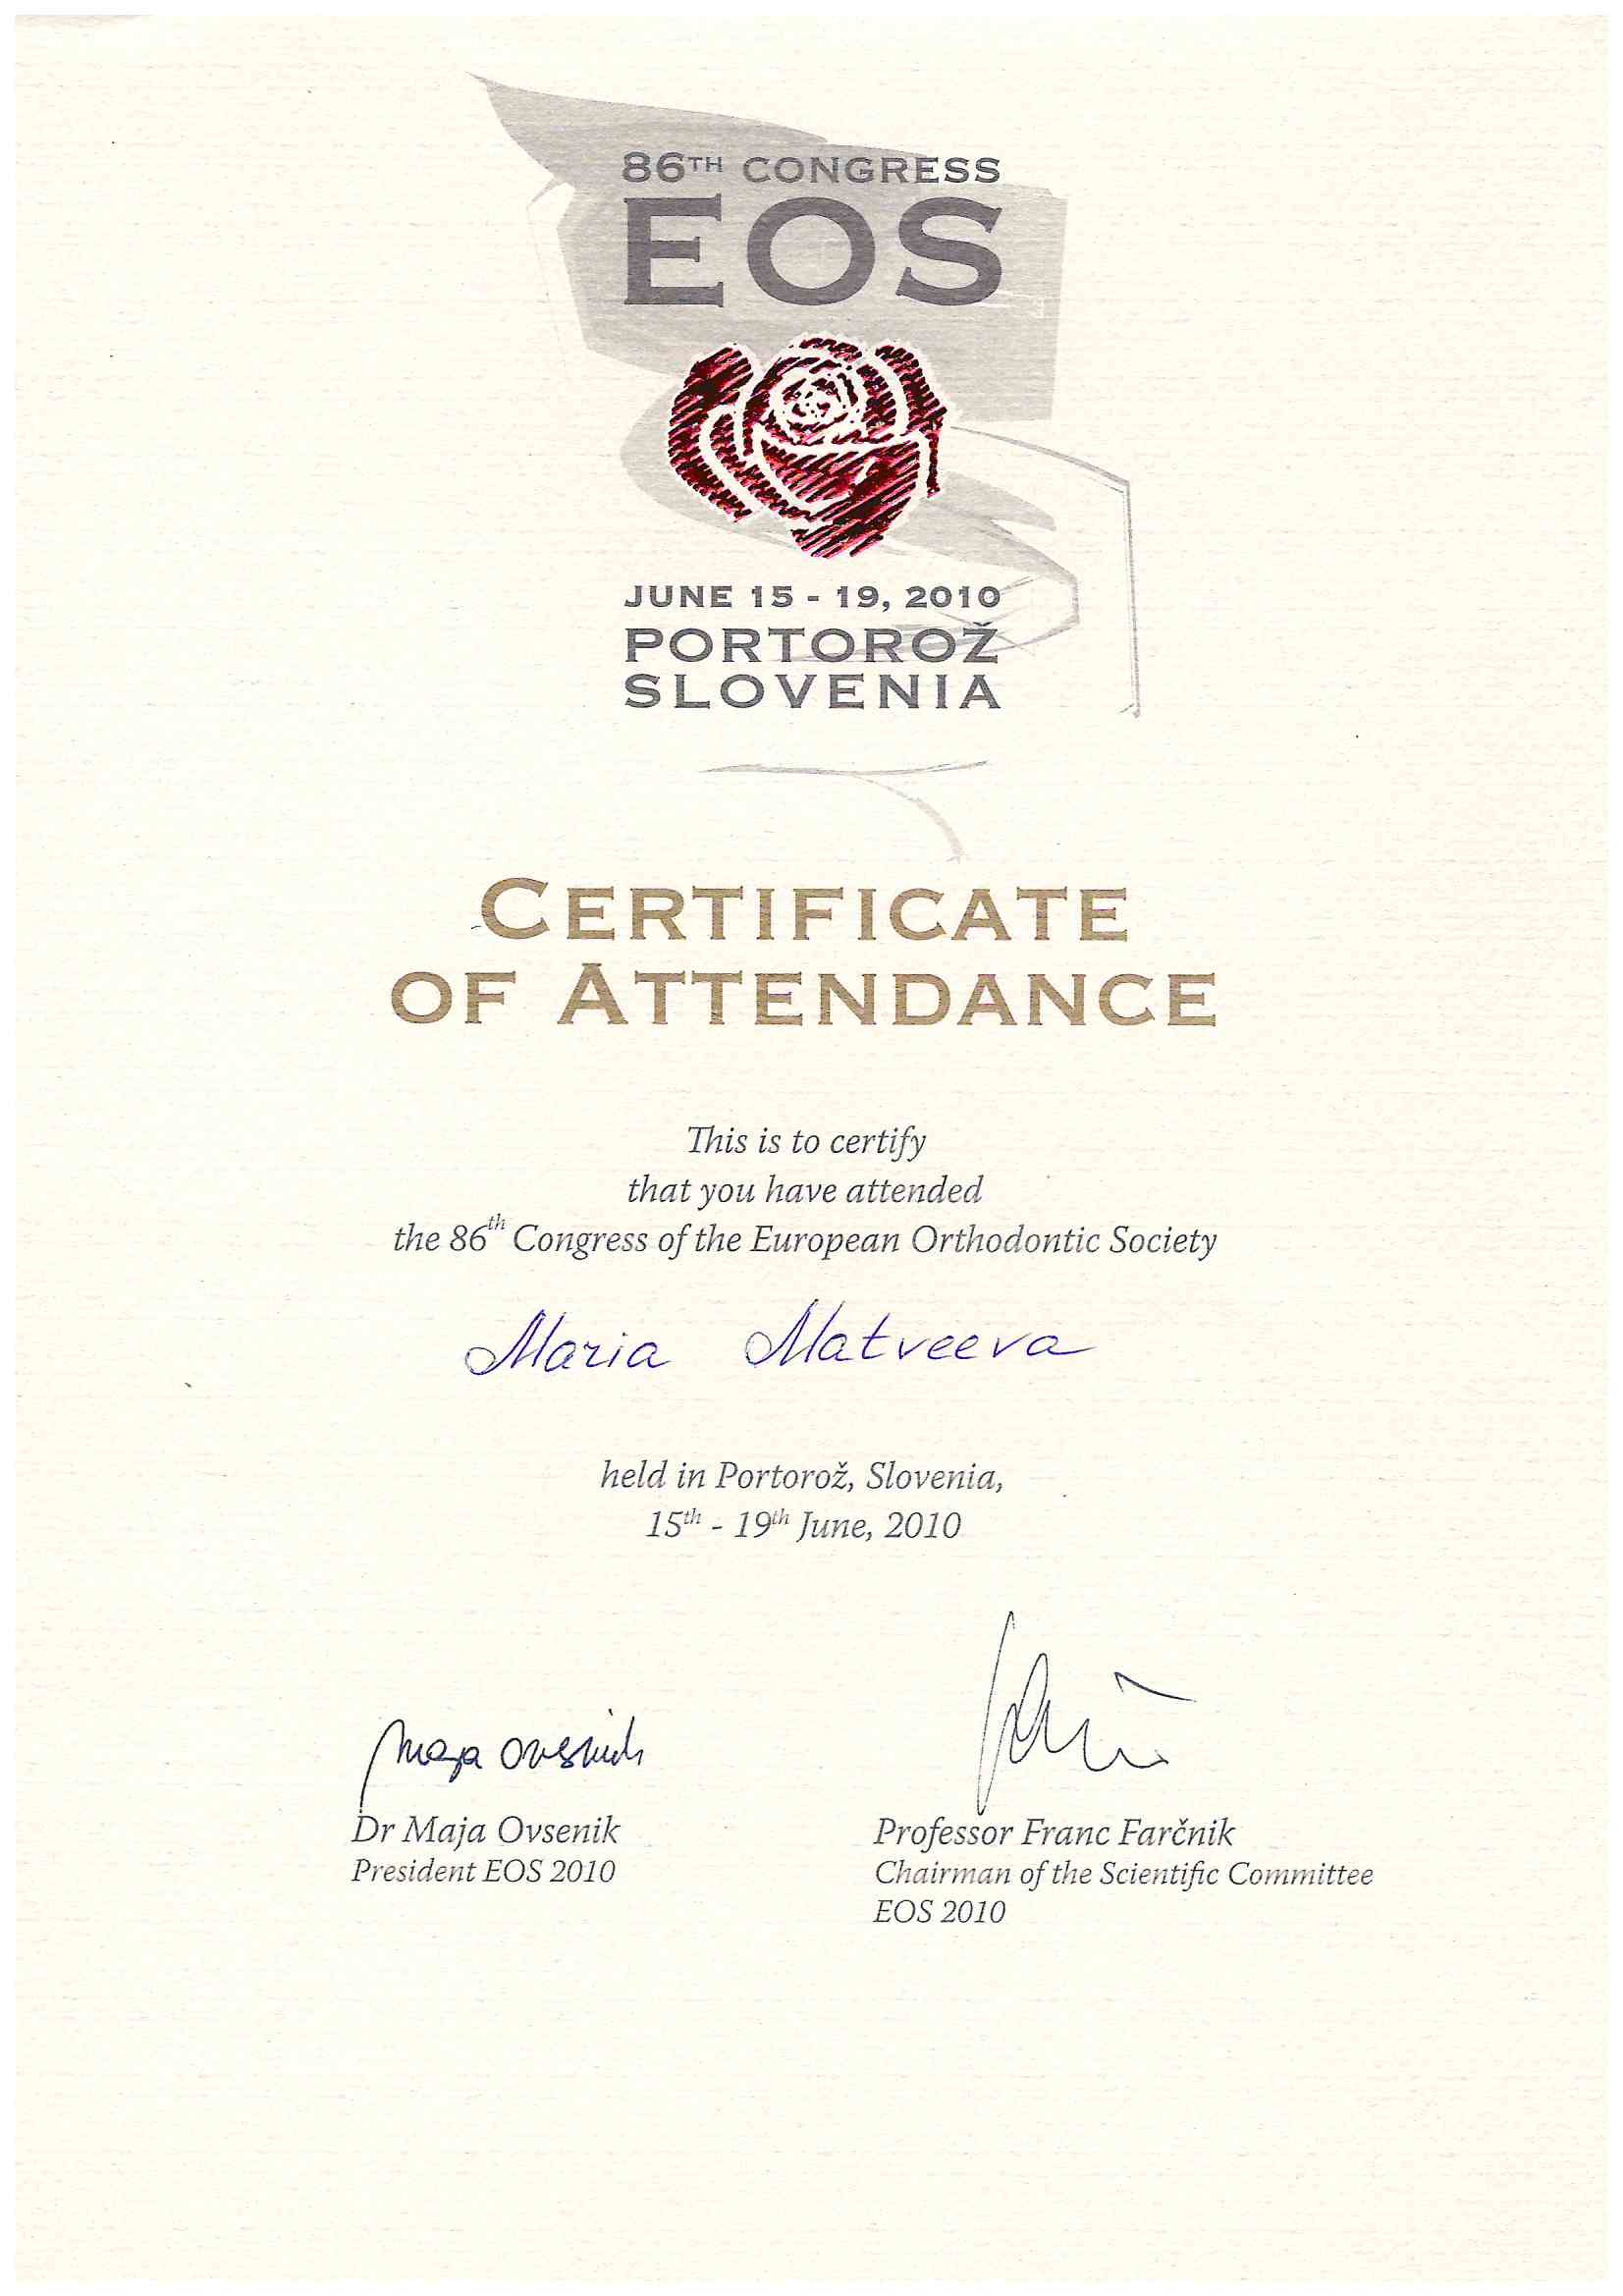 86TH CONGRESS
EOS
JUNE 15 - 19, 2010
PORTOROŽ
SLOVENIA
CERTIFICATE
OF ATTENDANCE
This is to certify
that you have attended
the 86th Congress of the European Orthodontic Society
Maria Matveeva
held in Portorož, Slovenia,
15th - 19th June, 2010
Maja Ovsenik
Dr Maja Ovsenik
President EOS 2010
Professor Franc Farčnik
Chairman of the Scientific Committee
EOS 2010